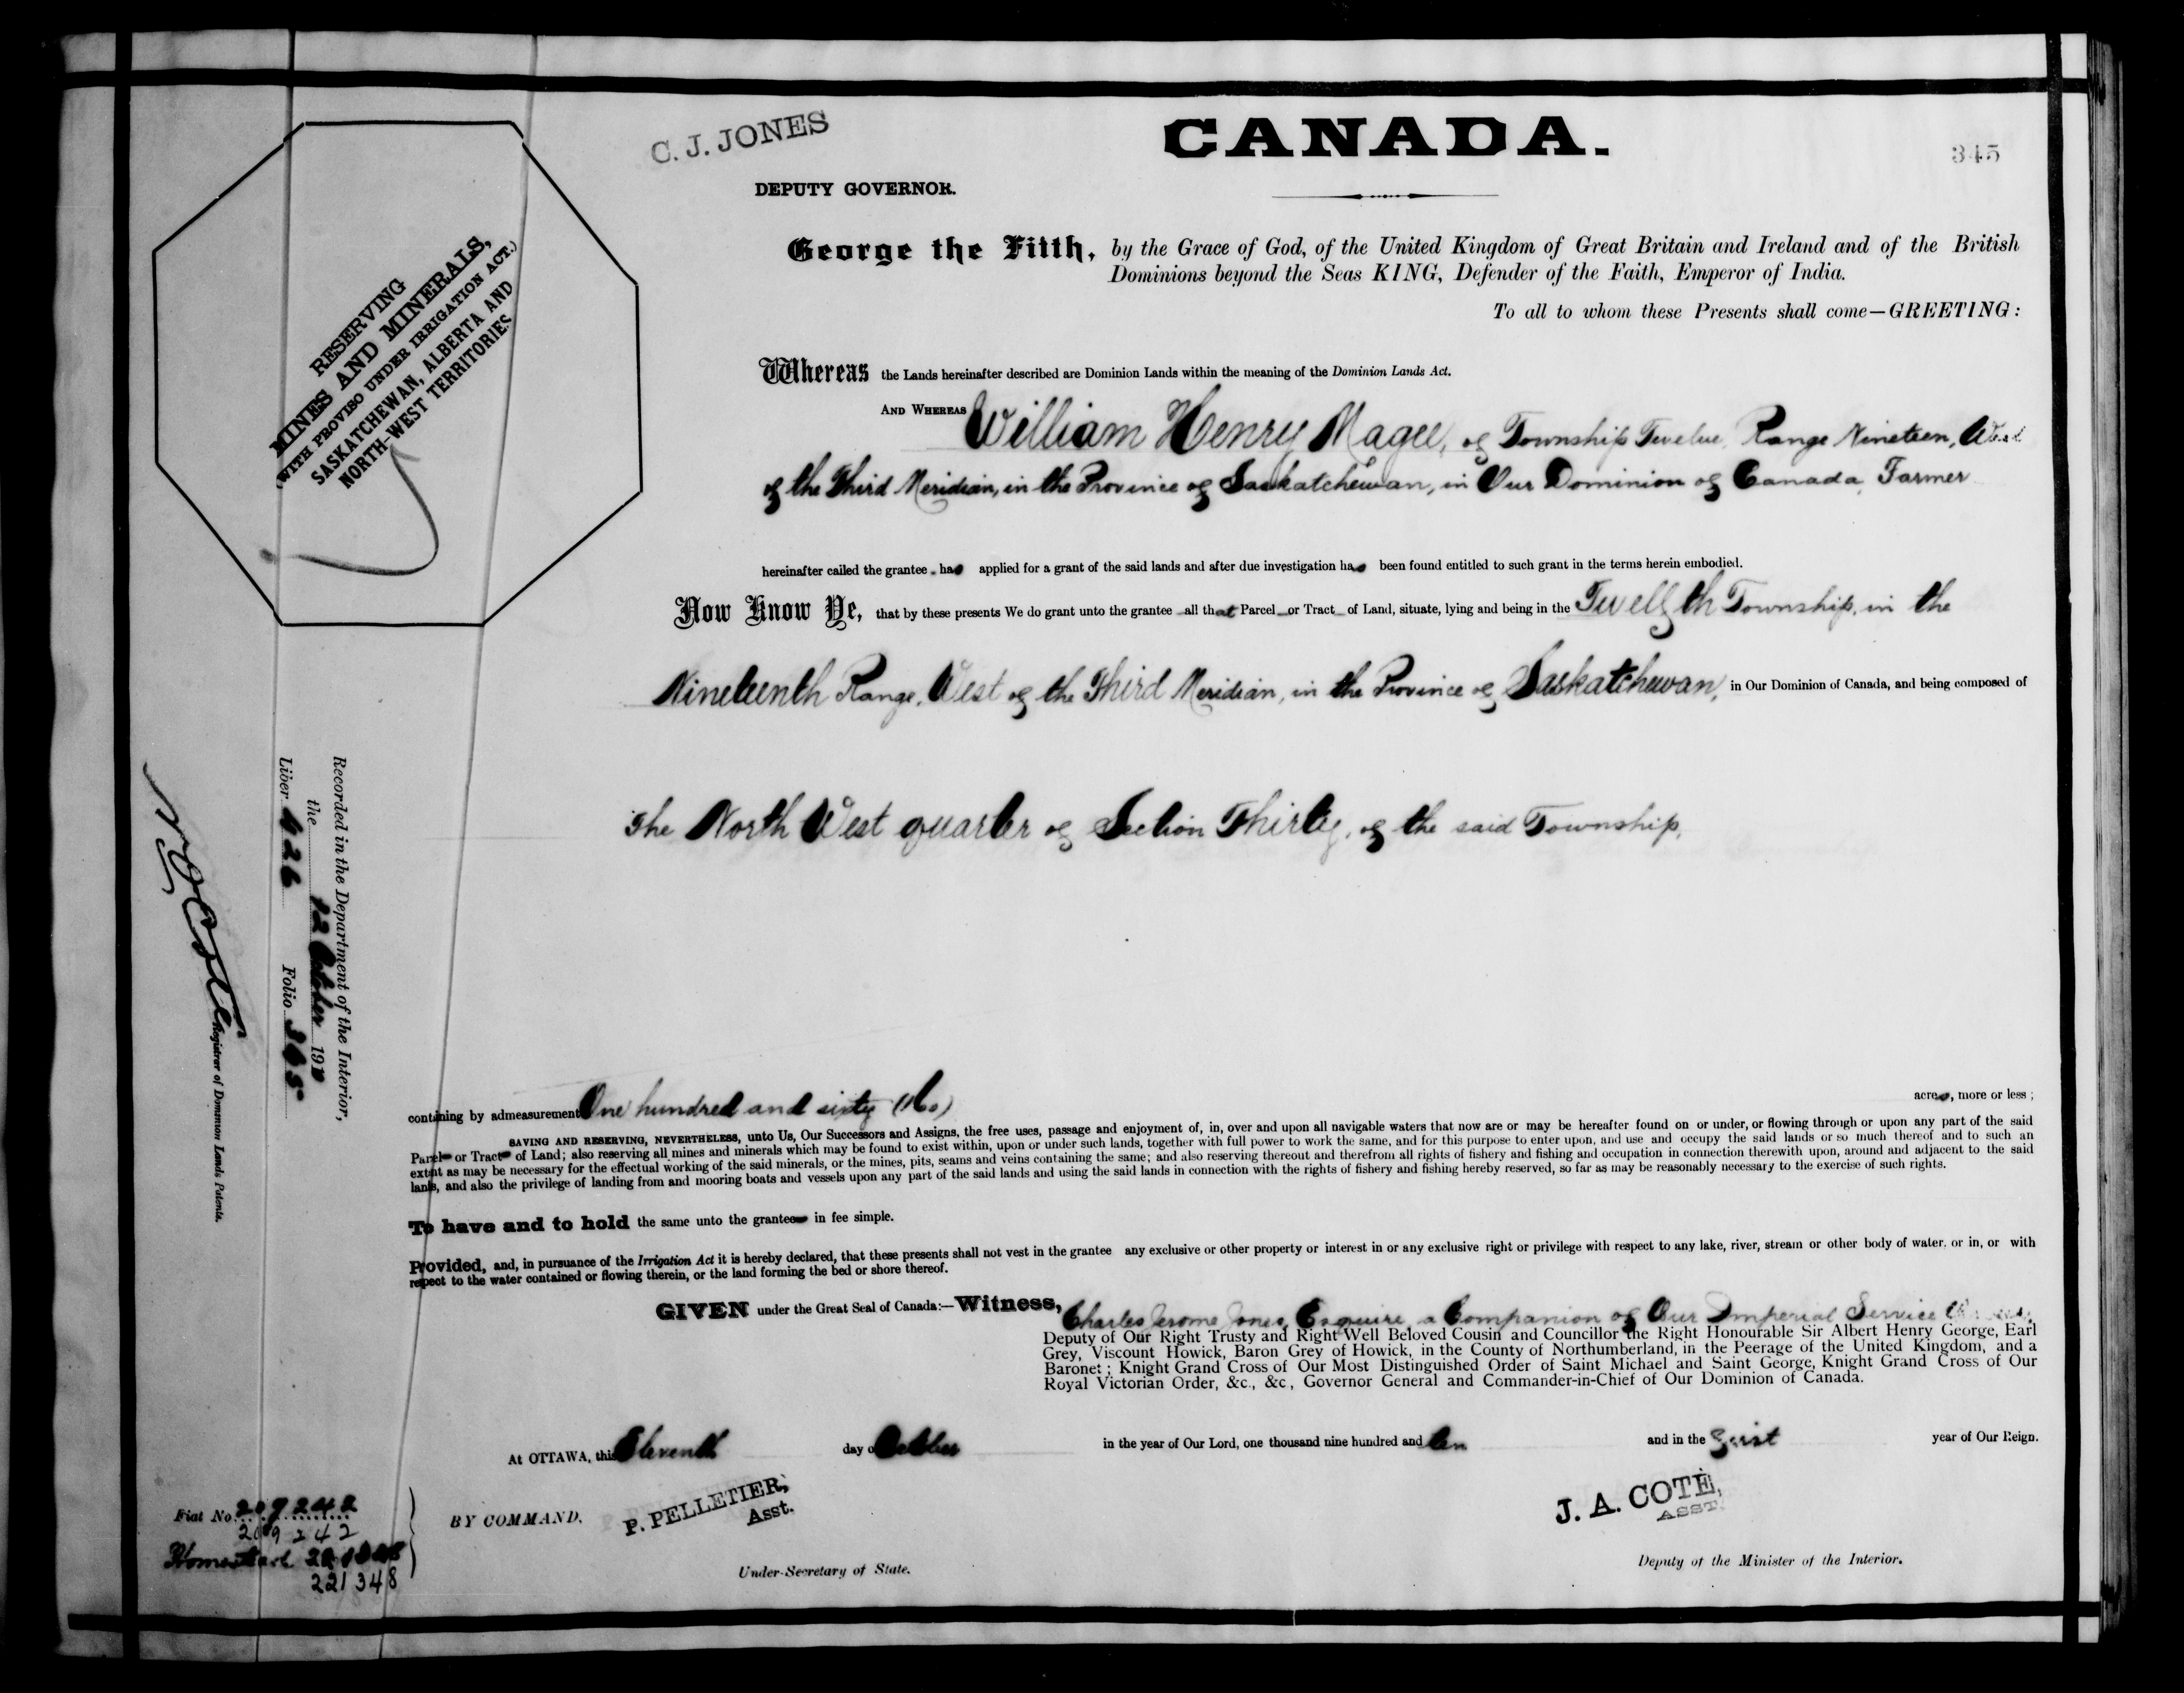 C. J. JONES
CANADA.
345
DEPUTY GOVERNOR.
George the Fifth, by the Grace of God, of the United Kingdom of Great Britain and Ireland and of the British
Dominions beyond the Seas KING, Defender of the Faith, Emperor of India.
To all to whom these Presents shall come—GREETING:
RESERVING
MINES AND MINERALS,
(WITH PROVISO UNDER IRRIGATION ACT.)
SASKATCHEWAN, ALBERTA AND
NORTH-WEST TERRITORIES
Whereas the Lands hereinafter described are Dominion Lands within the meaning of the Dominion Lands Act.
AND WHEREAS William Henry Magee, of Township Twelve, Range Nineteen, West
of the Third Meridian, in the Province of Saskatchewan, in Our Dominion of Canada, Farmer
hereinafter called the grantee has applied for a grant of the said lands and after due investigation has been found entitled to such grant in the terms herein embodied.
Now Know Ye, that by these presents We do grant unto the grantee all that Parcel or Tract of Land, situate, lying and being in the Twelfth Township, in the
Nineteenth Range, West of the Third Meridian, in the Province of Saskatchewan, in Our Dominion of Canada, and being composed of
The North West quarter of Section Thirty, of the said Township,
Recorded in the Department of the Interior,
the 12 October 1910
Liber 626 Folio 345
N O Coté
Registrar of Dominion Lands Patents.
containing by admeasurement One hundred and sixty (160) acres, more or less;
SAVING AND RESERVING, NEVERTHELESS, unto Us, Our Successors and Assigns, the free uses, passage and enjoyment of, in, over and upon all navigable waters that now are or may be hereafter found on or under, or flowing through or upon any part of the said
Parcel or Tract of Land; also reserving all mines and minerals which may be found to exist within, upon or under such lands, together with full power to work the same, and for this purpose to enter upon, and use and occupy the said lands or so much thereof and to such an
extent as may be necessary for the effectual working of the said minerals, or the mines, pits, seams and veins containing the same; and also reserving thereout and therefrom all rights of fishery and fishing and occupation in connection therewith upon, around and adjacent to the said
lands, and also the privilege of landing from and mooring boats and vessels upon any part of the said lands and using the said lands in connection with the rights of fishery and fishing hereby reserved, so far as may be reasonably necessary to the exercise of such rights.
To have and to hold the same unto the grantee in fee simple.
Provided, and, in pursuance of the Irrigation Act it is hereby declared, that these presents shall not vest in the grantee any exclusive or other property or interest in or any exclusive right or privilege with respect to any lake, river, stream or other body of water, or in, or with
respect to the water contained or flowing therein, or the land forming the bed or shore thereof.
GIVEN under the Great Seal of Canada:—Witness, Charles Jerome Jones, Esquire, a Companion of Our Imperial Service
Deputy of Our Right Trusty and Right Well Beloved Cousin and Councillor the Right Honourable Sir Albert Henry George, Earl
Grey, Viscount Howick, Baron Grey of Howick, in the County of Northumberland, in the Peerage of the United Kingdom, and a
Baronet; Knight Grand Cross of Our Most Distinguished Order of Saint Michael and Saint George, Knight Grand Cross of Our
Royal Victorian Order, &c., &c, Governor General and Commander-in-Chief of Our Dominion of Canada.
At OTTAWA, this Eleventh day of October in the year of Our Lord, one thousand nine hundred and ten and in the First year of Our Reign.
Fiat No. 209242
209242
Homestead
221348
BY COMMAND,
P. PELLETIER,
Asst.
Under-Secretary of State.
J. A. COTÉ,
ASST.
Deputy of the Minister of the Interior.